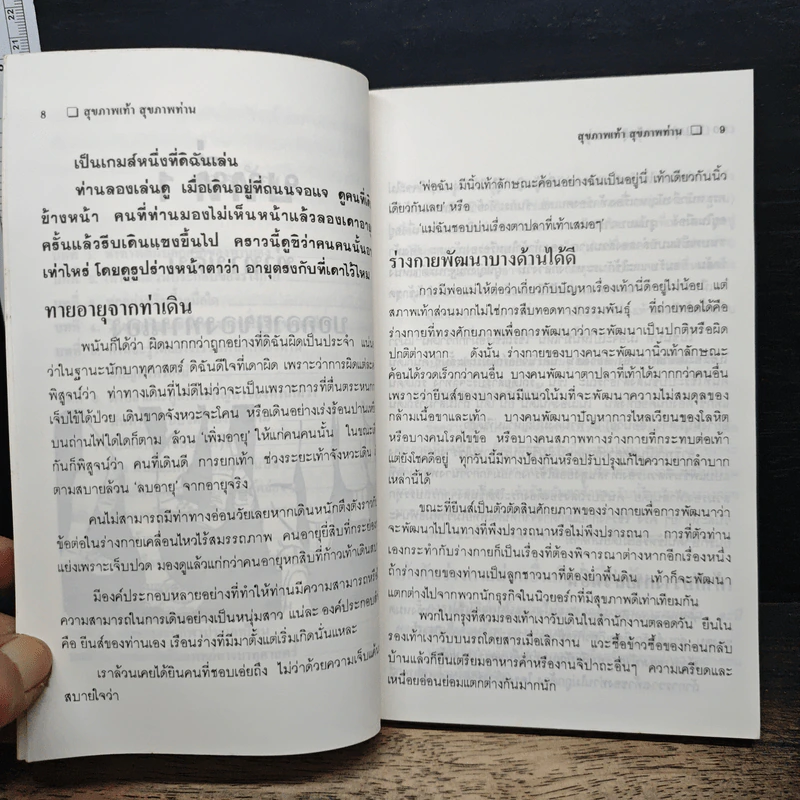 8 ❏ สุขภาพเท้า สุขภาพท่าน
เป็นเกมส์หนึ่งที่ดิฉันเล่น
ท่านลองเล่นดู เมื่อเดินอยู่ที่ถนนจอแจ ดูคนที่เดิ
ข้างหน้า คนที่ท่านมองไม่เห็นหน้าแล้วลองเดาอายุ
ครั้นแล้วรีบเดินแซงขึ้นไป คราวนี้ดูซิว่าคนคนนั้นอา
เท่าไหร่ โดยดูรูปร่างหน้าตาว่า อายุตรงกับที่เดาไว้ไหม
ทายอายุจากท่าเดิน
พนันก็ได้ว่า ผิดมากกว่าถูกอย่างที่ดิฉันผิดเป็นประจำ
ว่าในฐานะนักบาทุศาสตร์ ดิฉันดีใจที่เดาผิด เพราะว่าการผิดแต่ละ
พิสูจน์ว่า ท่าทางเดินที่ไม่ดีไม่ว่าจะเป็นเพราะการที่ตื่นตระหนก
เจ็บไข้ได้ป่วย เดินขาดจังหวะจะโคน หรือเดินอย่างเร่งร้อนปานเหยี
บนถ่านไฟใดใดก็ตาม ล้วน 'เพิ่มอายุ' ให้แก่คนคนนั้น ในขณะเดี
กันก็พิสูจน์ว่า คนที่เดินดี การยกเท้า ช่วงระยะเท้าจังหวะเดิน
ตามสบายล้วน 'ลบอายุ' จากอายุจริง
คนไม่สามารถมีท่าทางอ่อนวัยเลยหากเดินหนักตึงตังราวกับ
ข้อต่อในร่างกายเคลื่อนไหวไร้สมรรถภาพ คนอายุยี่สิบที่กระย่อง
แย่งเพราะเจ็บปวด มองดูแล้วแก่กว่าคนอายุหกสิบที่ก้าวเท้าเดินสบ
มีองค์ประกอบหลายอย่างที่ทำให้ท่านมีความสามารถหรือ
ความสามารถในการเดินอย่างเป็นหนุ่มสาว แน่ละ องค์ประกอบ
คือ ยีนส์ของท่านเอง เรือนร่างที่มีมาตั้งแต่เริ่มเกิดนั่นแหละ
เราล้วนเคยได้ยินคนที่ชอบเอ่ยถึง ไม่ว่าด้วยความเจ็บแค้น
สบายใจว่า
สุขภาพเท้า สุขภาพท่าน ❏ 9
'พ่อฉัน มีนิ้วเท้าลักษณะค้อนอย่างฉันเป็นอยู่นี่ เท้าเดียวกันนิ้ว
เดียวกันเลย' หรือ
'แม่ฉันชอบบ่นเรื่องตาปลาที่เท้าเสมอๆ'
ร่างกายพัฒนาบางด้านได้ดี
การมีพ่อแม่ให้ต่อว่าเกี่ยวกับปัญหาเรื่องเท้านี่ดีอยู่ไม่น้อย แต่
สภาพเท้าส่วนมากไม่ใช่การสืบทอดทางกรรมพันธุ์ ที่ถ่ายทอดได้คือ
ร่างกายที่ทรงศักยภาพเพื่อการพัฒนาว่าจะพัฒนาเป็นปกติหรือผิด
ปกติต่างหาก ดังนั้น ร่างกายของบางคนจะพัฒนานิ้วเท้าลักษณะ
ค้อนได้รวดเร็วกว่าคนอื่น บางคนพัฒนาตาปลาที่เท้าได้มากกว่าคนอื่น
เพราะว่ายีนส์ของบางคนมีแนวโน้มที่จะพัฒนาความไม่สมดุลของ
กล้ามเนื้อขาและเท้า บางคนพัฒนาปัญหาการไหลเวียนของโลหิต
หรือบางคนโรคไขข้อ หรือบางคนสภาพทางร่างกายที่กระทบต่อเท้า
แต่ยังโชคดีอยู่ ทุกวันนี้มีทางป้องกันหรือปรับปรุงแก้ไขความยากลำบาก
เหล่านี้ได้
ขณะที่ยีนส์เป็นตัวตัดสินศักยภาพของร่างกายเพื่อการพัฒนาว่า
จะพัฒนาไปในทางที่พึงปรารถนาหรือไม่พึงปรารถนา การที่ตัวท่าน
เองกระทำกับร่างกายก็เป็นเรื่องที่ต้องพิจารณาต่างหากอีกเรื่องหนึ่ง
ถ้าร่างกายของท่านเป็นลูกชาวนาที่ต้องย่ำพื้นดิน เท้าก็จะพัฒนา
แตกต่างไปจากพวกนักธุรกิจในนิวยอร์กที่มีสุขภาพดีเท่าเทียมกัน
พวกในกรุงที่สวมรองเท้าเงาวับเดินในสำนักงานตลอดวัน ยืนใน
รองเท้าเงาวับบนรถโดยสารเมื่อเลิกงาน แวะซื้อข้าวซื้อของก่อนกลับ
บ้านแล้วก็ยืนเตรียมอาหารค่ำหรืองานจิปาถะอื่นๆ ความเครียดและ
เหนื่อยอ่อนย่อมแตกต่างกันมากนัก